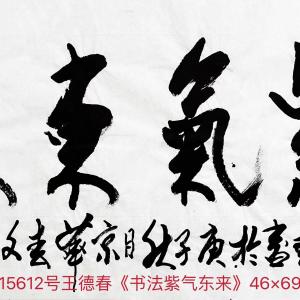 紫氣東
書於庚子秋月京華
15612号王德春《书法紫气东来》46×69